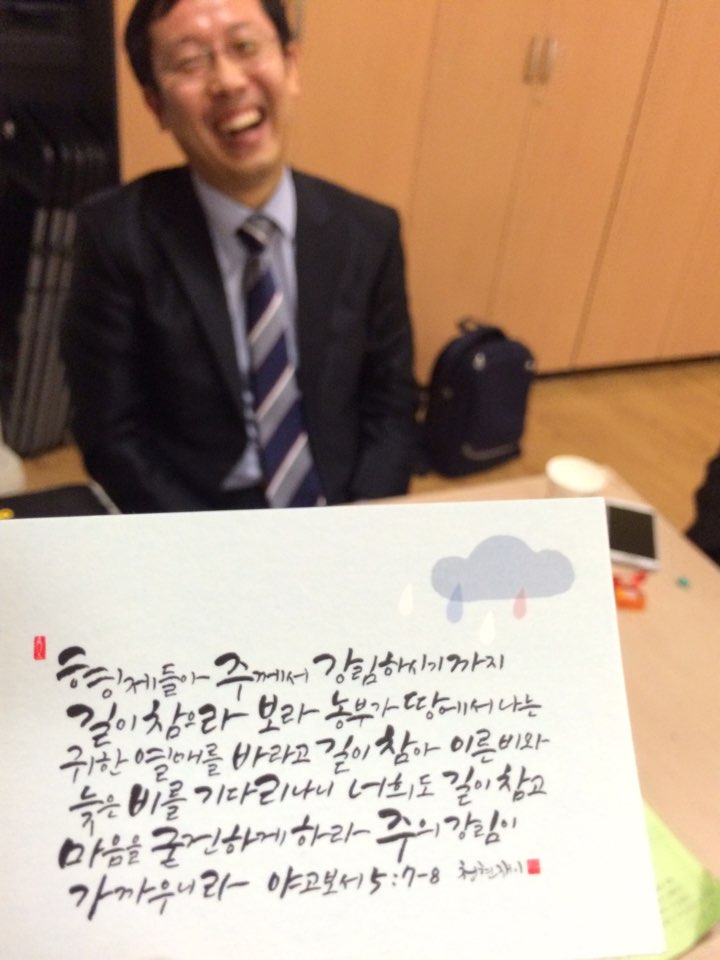 형제들아 주께서 강림하시기까지
길이 참으라 보라 농부가 땅에서 나는
귀한 열매를 바라고 길이 참아 이른 비와
늦은 비를 기다리나니 너희도 길이 참고
마음을 굳건하게 하라 주의 강림이
가까우니라 야고보서 5:7-8 청현재이